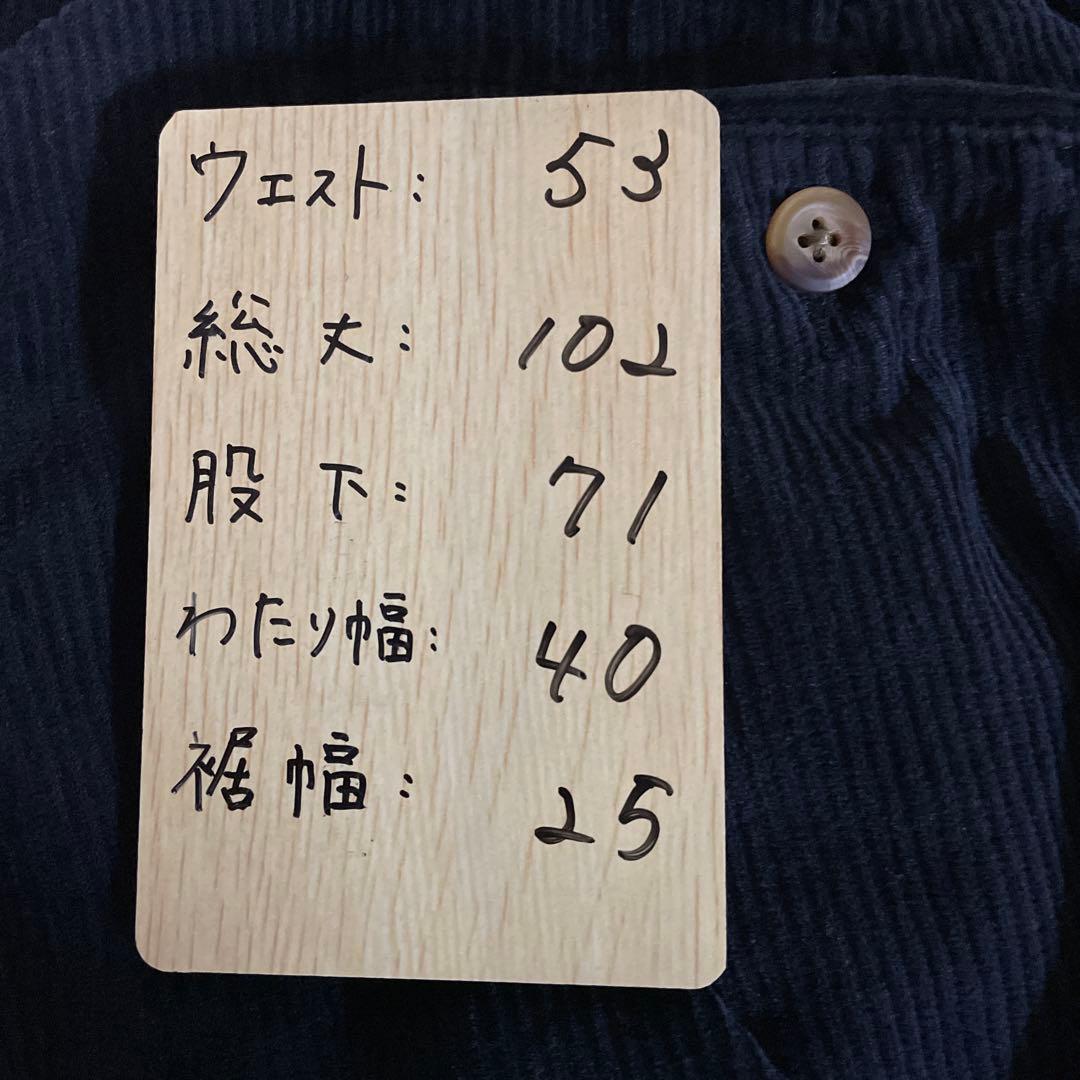 ウエスト: 53
総丈: 102
股下: 71
わたり幅: 40
裾幅: 25